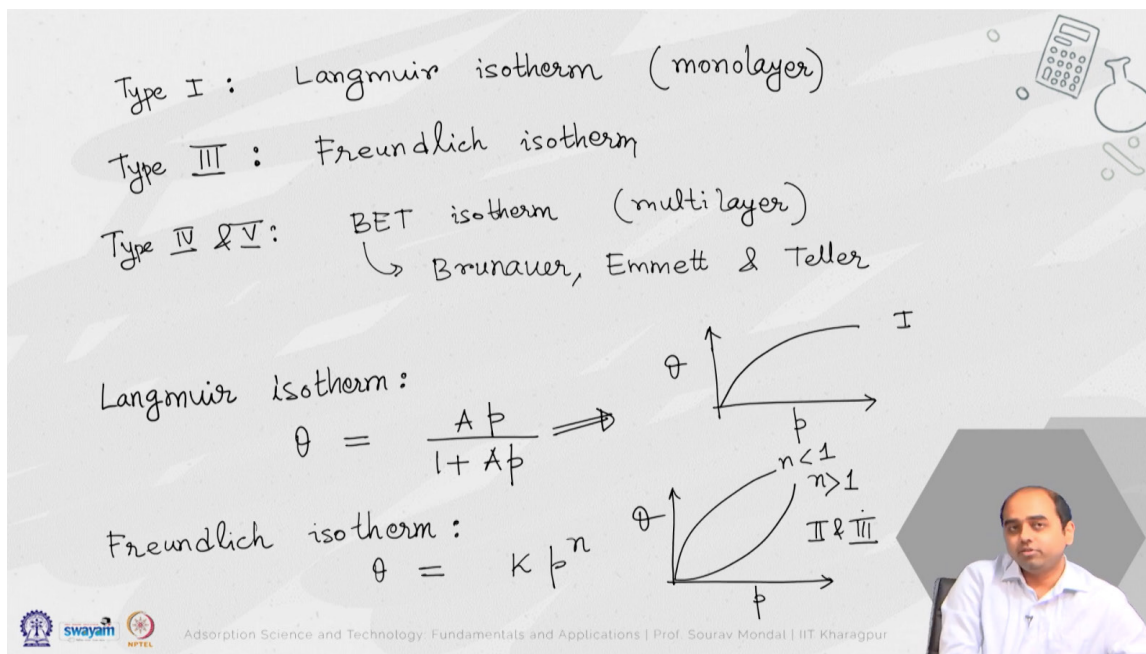 Type I : Langmuir isotherm (monolayer)
Type III : Freundlich isotherm
Type IV & V : BET isotherm (multilayer)
↳ Brunauer, Emmett & Teller
I
θ
p
Langmuir isotherm :
θ = Ap / 1 + Ap ⟹
n<1
n>1
θ
II & III
p
Freundlich isotherm :
θ = K p^n
swayam
NPTEL
Adsorption Science and Technology: Fundamentals and Applications | Prof. Sourav Mondal | IIT Kharagpur